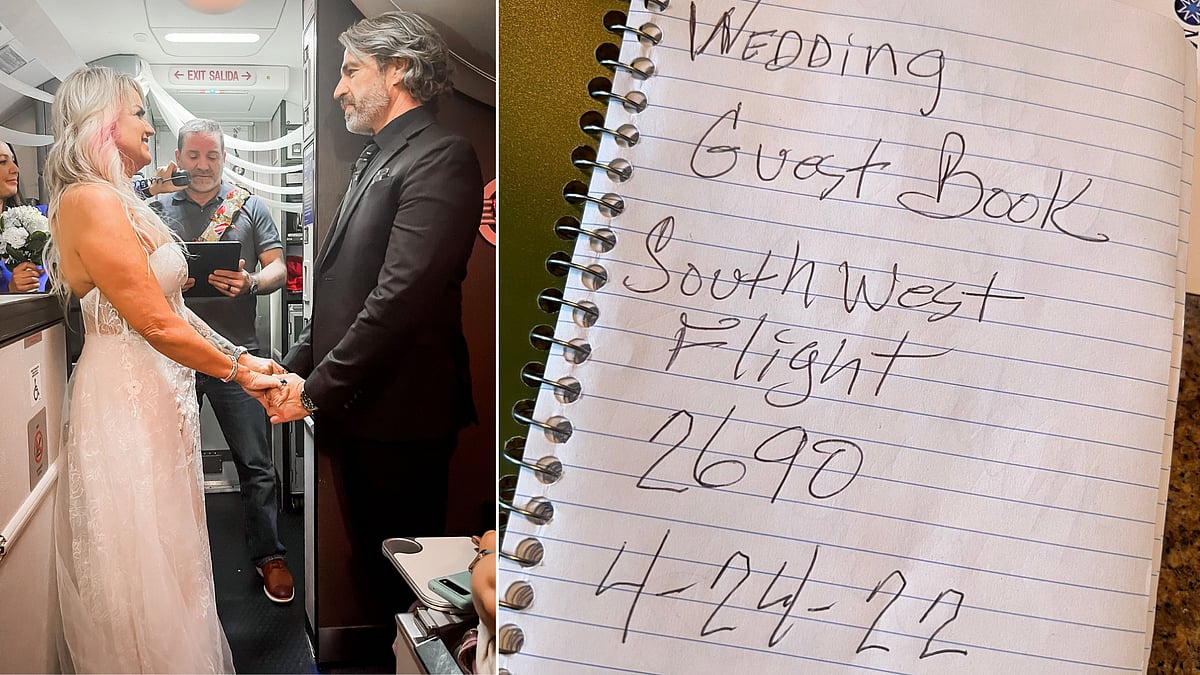 ← EXIT SALIDA →
WEDDing
Guest Book
SouthWest
Flight
2690
4-24-22